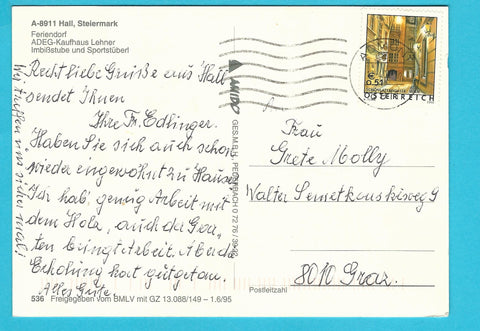 A-8911 Hall, Steiermark
Feriendorf
ADEG-Kaufhaus Lehner
Imbißstube und Sportstüberl
Recht liebe Grüße aus Hall
sendet Ihnen
Ihre Fr. Edlinger.
Haben Sie sich auch schon
wieder eingewöhnt zu Hause.
Ich hab' genug Arbeit mit
dem Holz, auch der Gar,,
ten bringt Arbeit. Aber die
Erholung hat gutgetan.
Alles Gute.
Wir treffen uns sicher mal!
536 Freigegeben vom BMLV mit GZ 13.088/149 – 1.6/95
GES.M.B.H.
€ 0.51
ÖSTERREICH
Frau
Grete Molly
Walter Semetkowskiweg 9
8010 Graz.
Postleitzahl